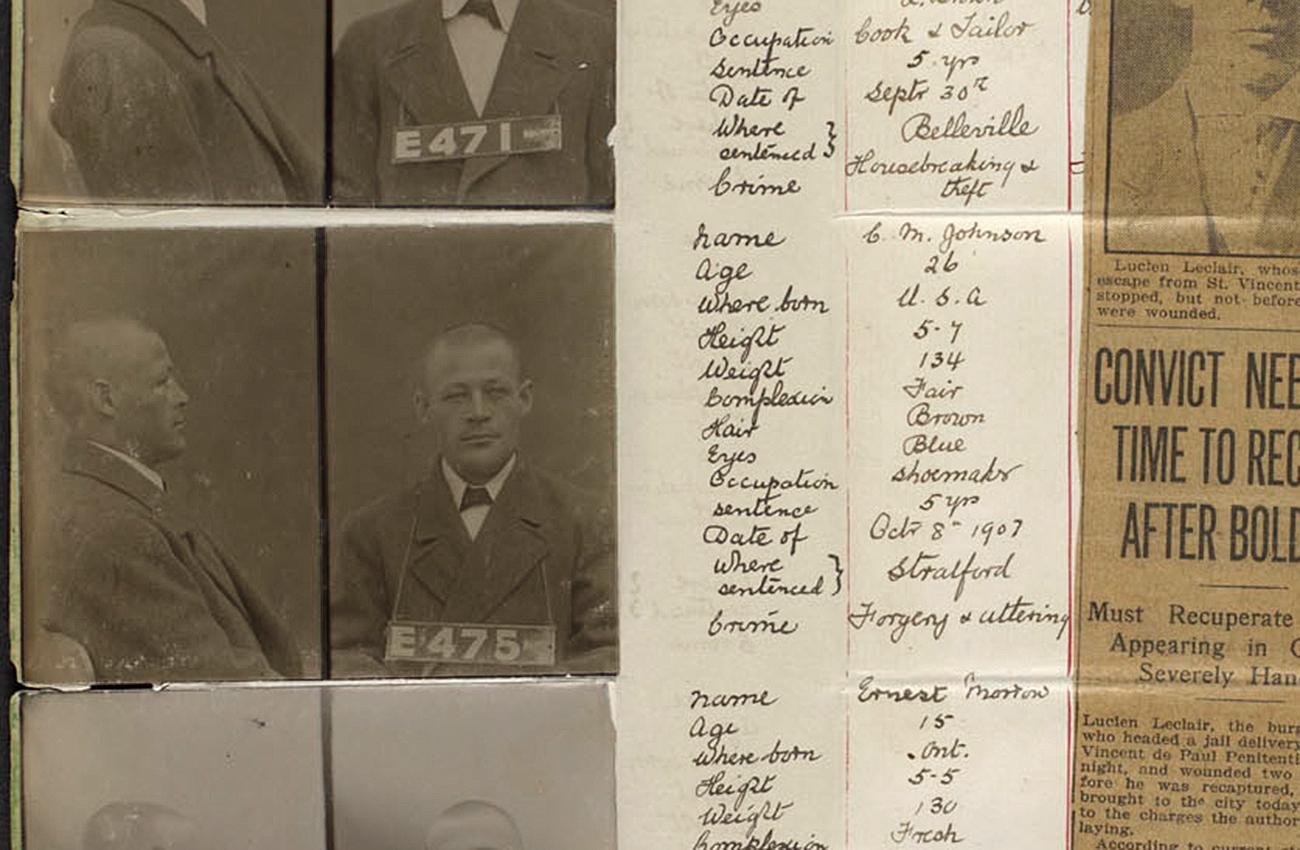 Eyes
Occupation Cook & Tailor
Sentence 5 yrs
Date of Septr 30th
Where
sentenced } Belleville
Crime Housebreaking &
theft
E 471
Name C. M. Johnson
Age 26
Where born U. S. A
Height 5-7
Weight 134
Complexion Fair
Hair Brown
Eyes Blue
Occupation Shoemaker
Sentence 5 yrs
Date of Octr 8th 1907
Where
sentenced } Stratford
Crime Forgery & uttering
E 475
Name Ernest Morton
Age 15
Where born Ont.
Height 5-5
Weight 130
Complexion Fresh
Lucien Leclair, whos
escape from St. Vincent
stopped, but not before
were wounded.
CONVICT NEE
TIME TO REC
AFTER BOLD
Must Recuperate
Appearing in C
Severely Han
Lucien Leclair, the bur
who headed a jail delivery
Vincent de Paul Penitenti
night, and wounded two
fore he was recaptured,
brought to the city today
to the charges the author
laying.
According to current